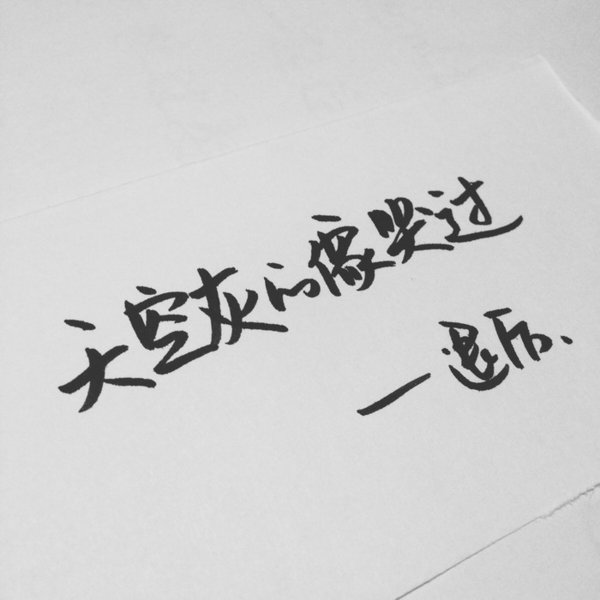 天空灰的像哭过
一退后、